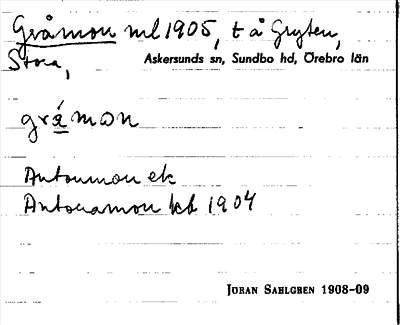 Gråmon ml 1905, t å Gryten,
Stora, Askersunds sn, Sundbo hd, Örebro län
grǻmωn
Antonmon ek
Antonamon kb 1904
JORAN SAHLGREN 1908-09